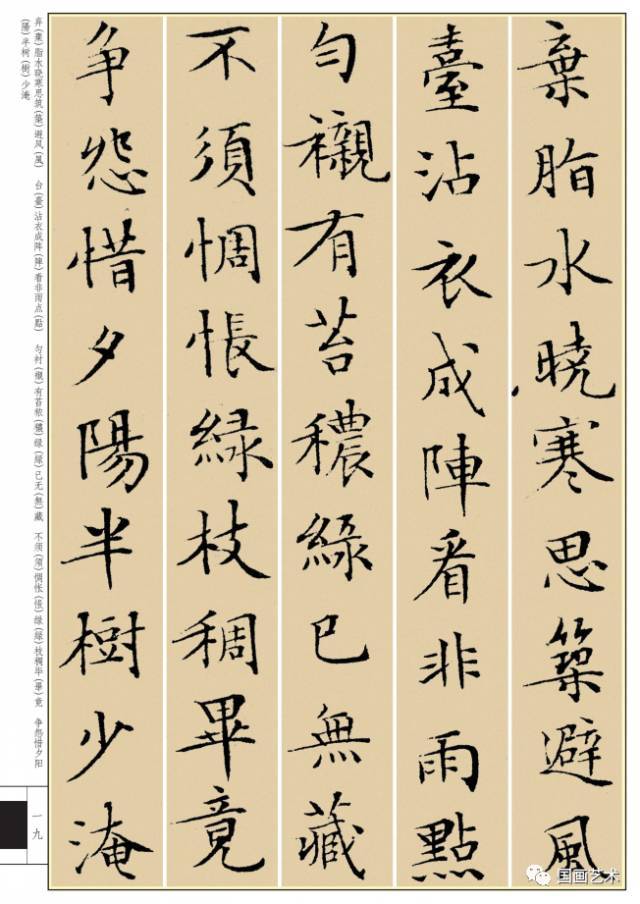 棄脂水曉寒思築避風
臺沾衣成陣看非雨點
勻襯有苔穠綠已無藏
不須惆悵緑枝稠畢竟
争怨惜夕陽半樹少淹
弃(棄)脂水晓寒思筑(築)避风(風) 台(臺)沾衣成阵(陣)看非雨点(點) 匀衬(襯)有苔秾(穠)绿(綠)已无(無)藏 不须(須)惆怅(悵)绿(緑)枝稠毕(畢)竟 争怨惜夕阳
(陽)半树(樹)少淹
一九
国画艺术